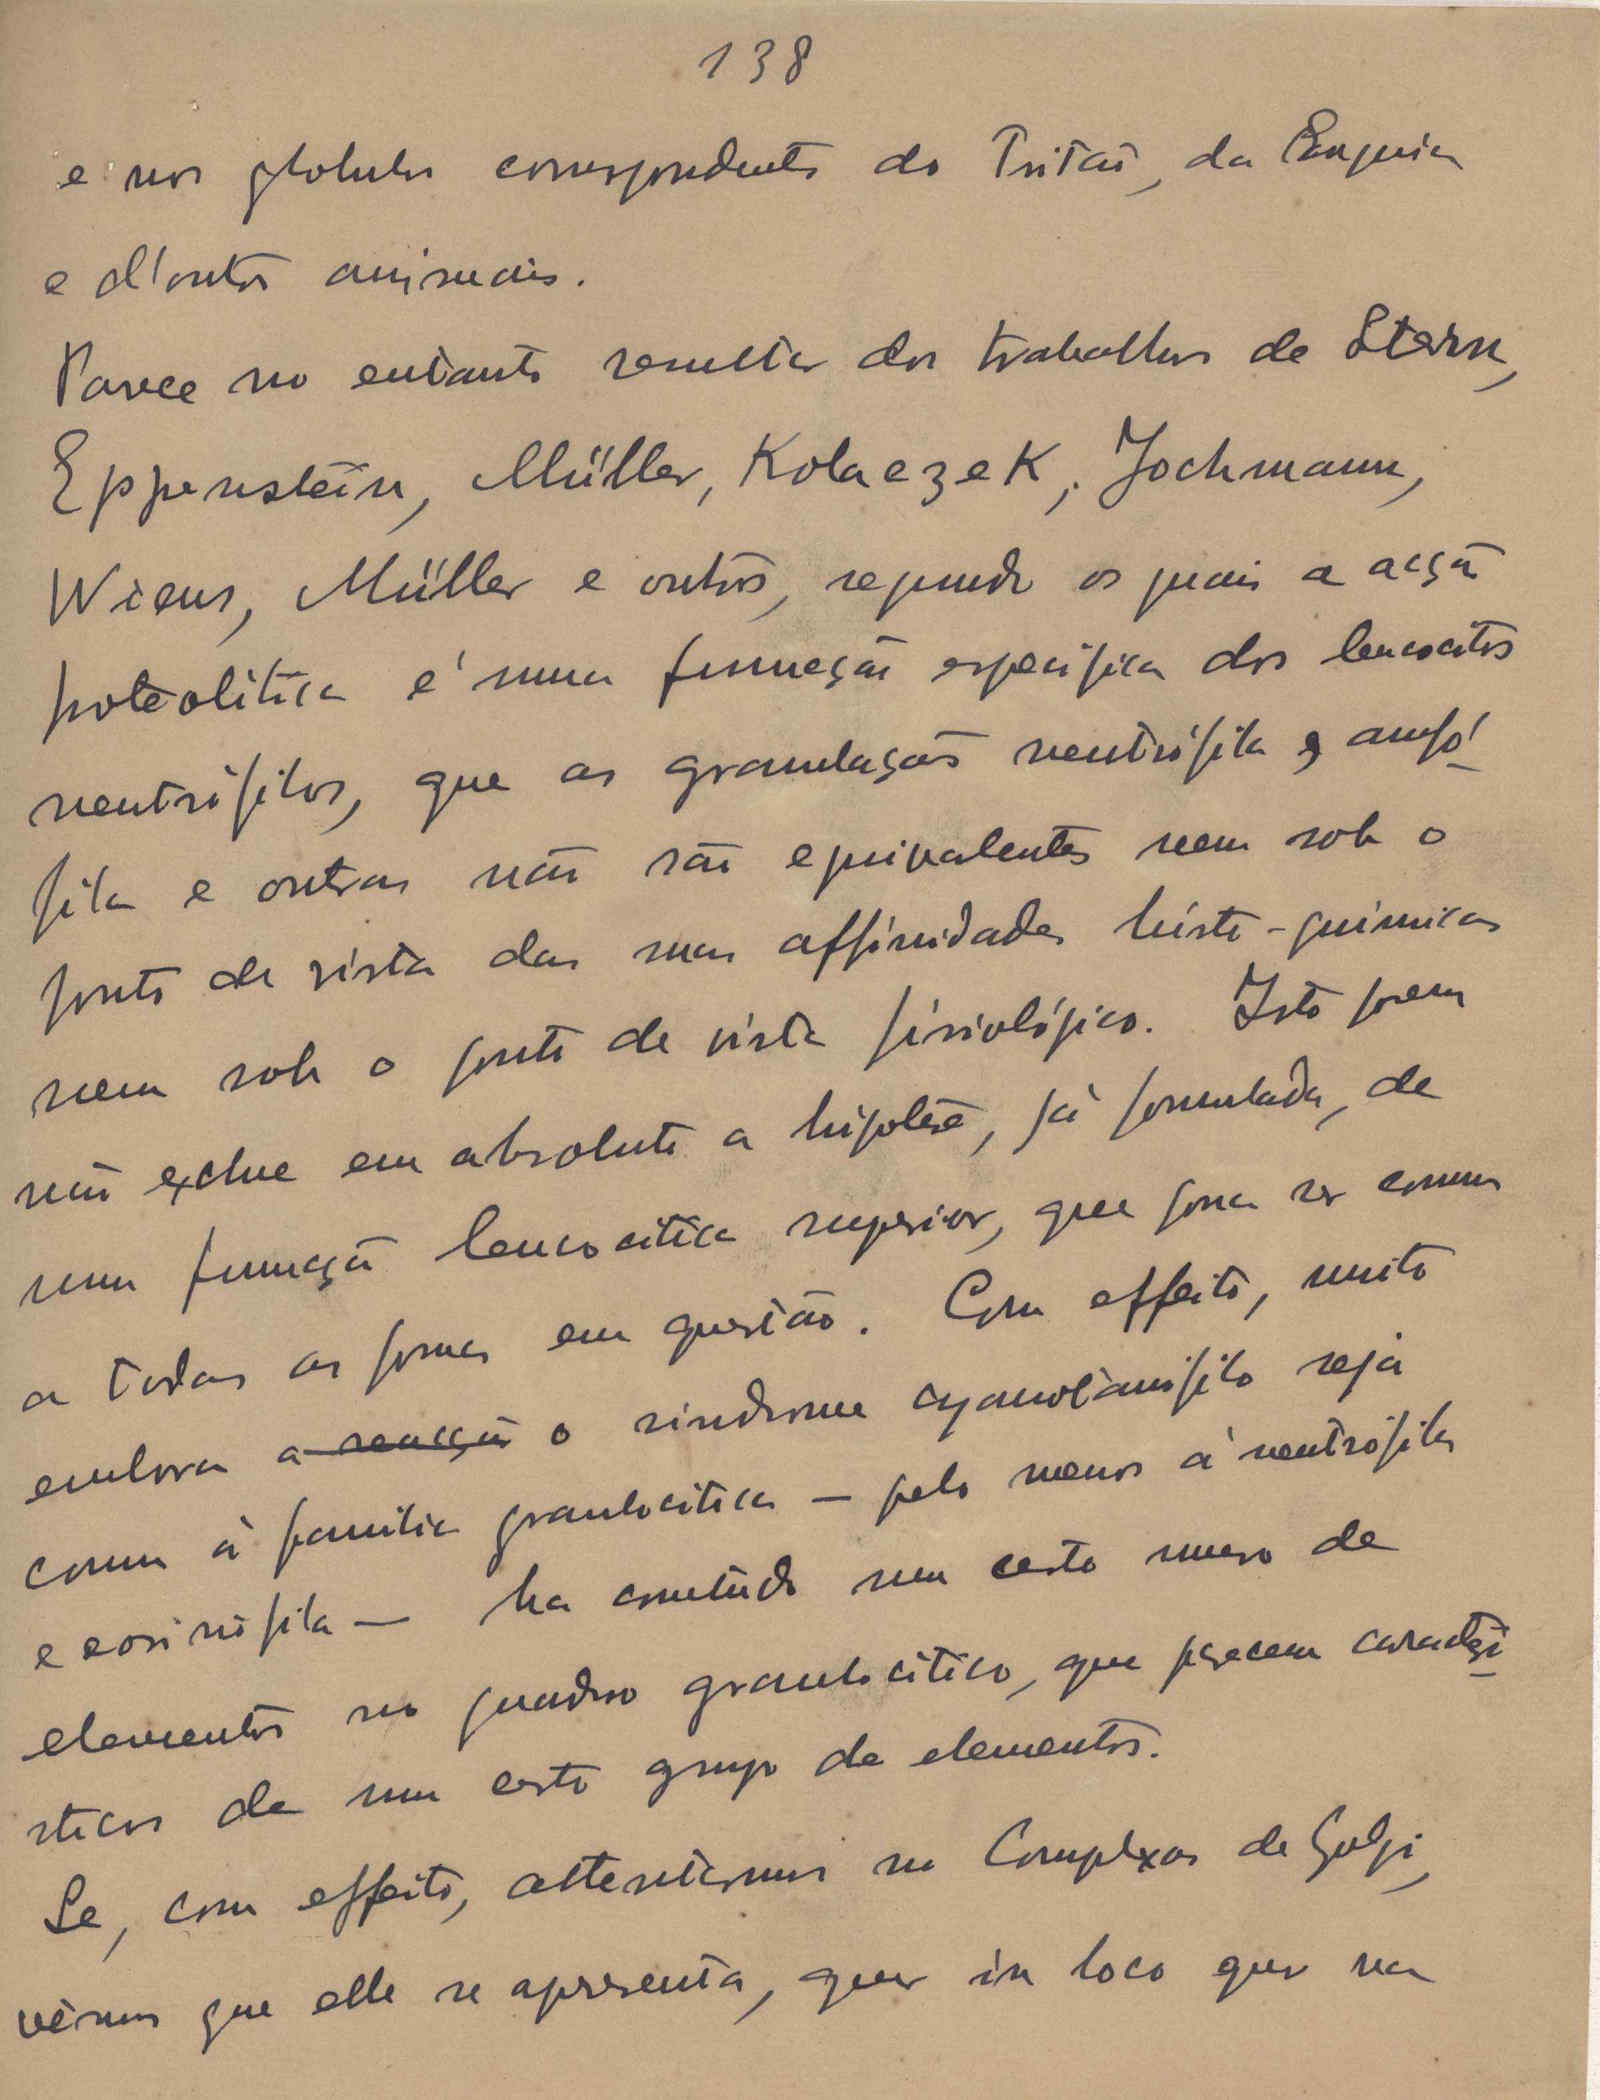 138
e nos globulos correspondentes do Tritão, da Enguia
e d'outros animais.
Parece no entanto resultar dos trabalhos de Stern,
Eppenstein, Müller, Kolaczek, Jochmann,
Wiens, Müller e outros, segundo os quais a acção
proteolitica é uma funcção especifica dos leucocitos
neutrófilos, que as granulações neutrófila e, anfó
fila e outras não são equivalentes nem sob o
ponto de vista das suas affinidades histo-quimicas
nem sob o ponto de vista fisiológico. Isto porem
não exclue em absoluto a hipotese, já formulada, de
uma funcção leucocitica superior, que possa ser comum
a todas as formas em questão. Com effeito, muito
embora a reacção o sindrome cyanotanófilo seja
comum á familia granulocitica — pelo menos á neutrófila
e eosinófila — ha comtudo um certo numero de
elementos no quadro granulocitico, que parecem caracterí
sticos de um certo grupo de elementos.
Se, com effeito, attentarmos no Complexo de Golgi,
vêmos que elle se apresenta, quer in loco quer na